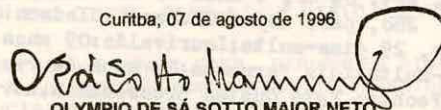 Curitba, 07 de agosto de 1996
OLYMPIO DE SÁ SOTTO MAIOR NETO